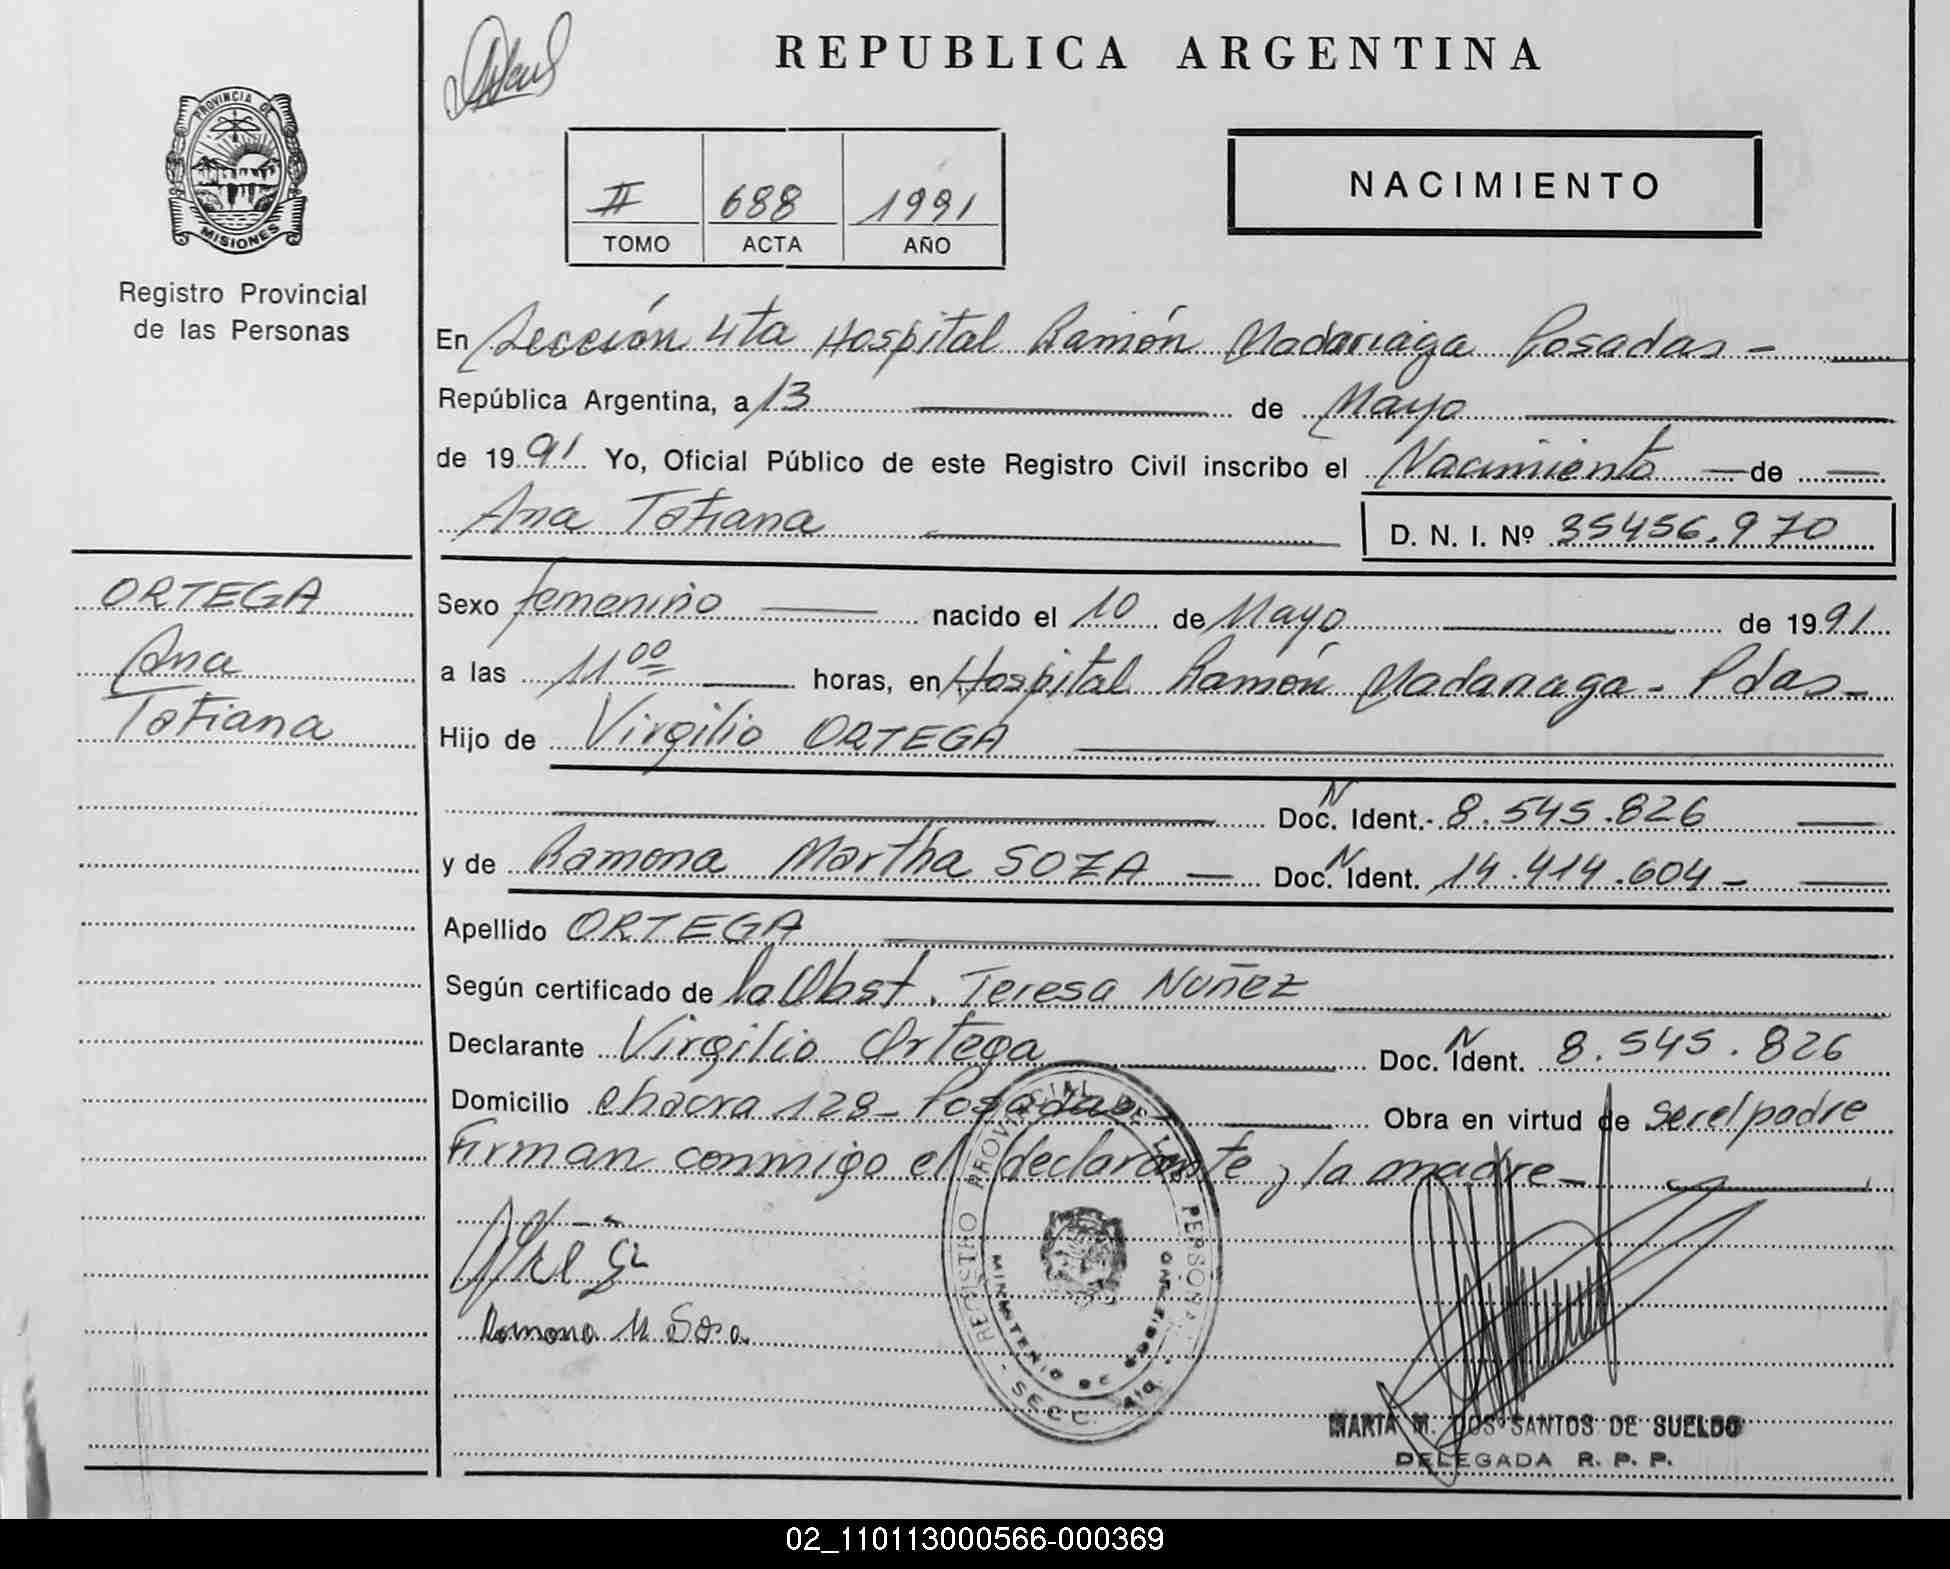 REPUBLICA ARGENTINA
PROVINCIA DE
MISIONES
Registro Provincial
de las Personas
II 688 1991
TOMO ACTA AÑO
NACIMIENTO
En Sección 4ta Hospital Ramón Madariaga Posadas -
República Argentina, a 13 de Mayo
de 1991 Yo, Oficial Público de este Registro Civil inscribo el Nacimiento de
Ana Tatiana
D. N. I. Nº 35456.970
ORTEGA
Ana
Tatiana
Sexo femenino nacido el 10 de Mayo de 1991
a las 11 00 horas, en Hospital Ramón Madariaga - Pdas -
Hijo de Virgilio ORTEGA
N
Doc. Ident. - 8.545.826
y de Ramona Martha SOZA N Doc. Ident. 14.414.604 -
Apellido ORTEGA
Según certificado de la Obst. Teresa Nuñez
Declarante Virgilio Ortega N Doc. Ident. 8.545.826
Domicilio chacra 128 - Posadas - Obra en virtud de ser el padre
Firman conmigo el declarante y la madre -
REGISTRO PROVINCIAL DE LAS PERSONAS
MINISTERIO DE GOBIERNO
- SECC. 4ta. -
Ramona M Sosa
MARTA M. DOS SANTOS DE SUELDO
DELEGADA R. P. P.
02_110113000566-000369